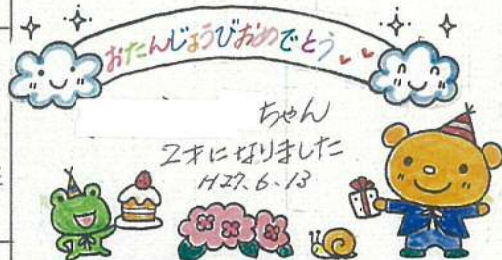 おたんじょうびおめでとう
ちゃん
2才になりました
H27.6.13